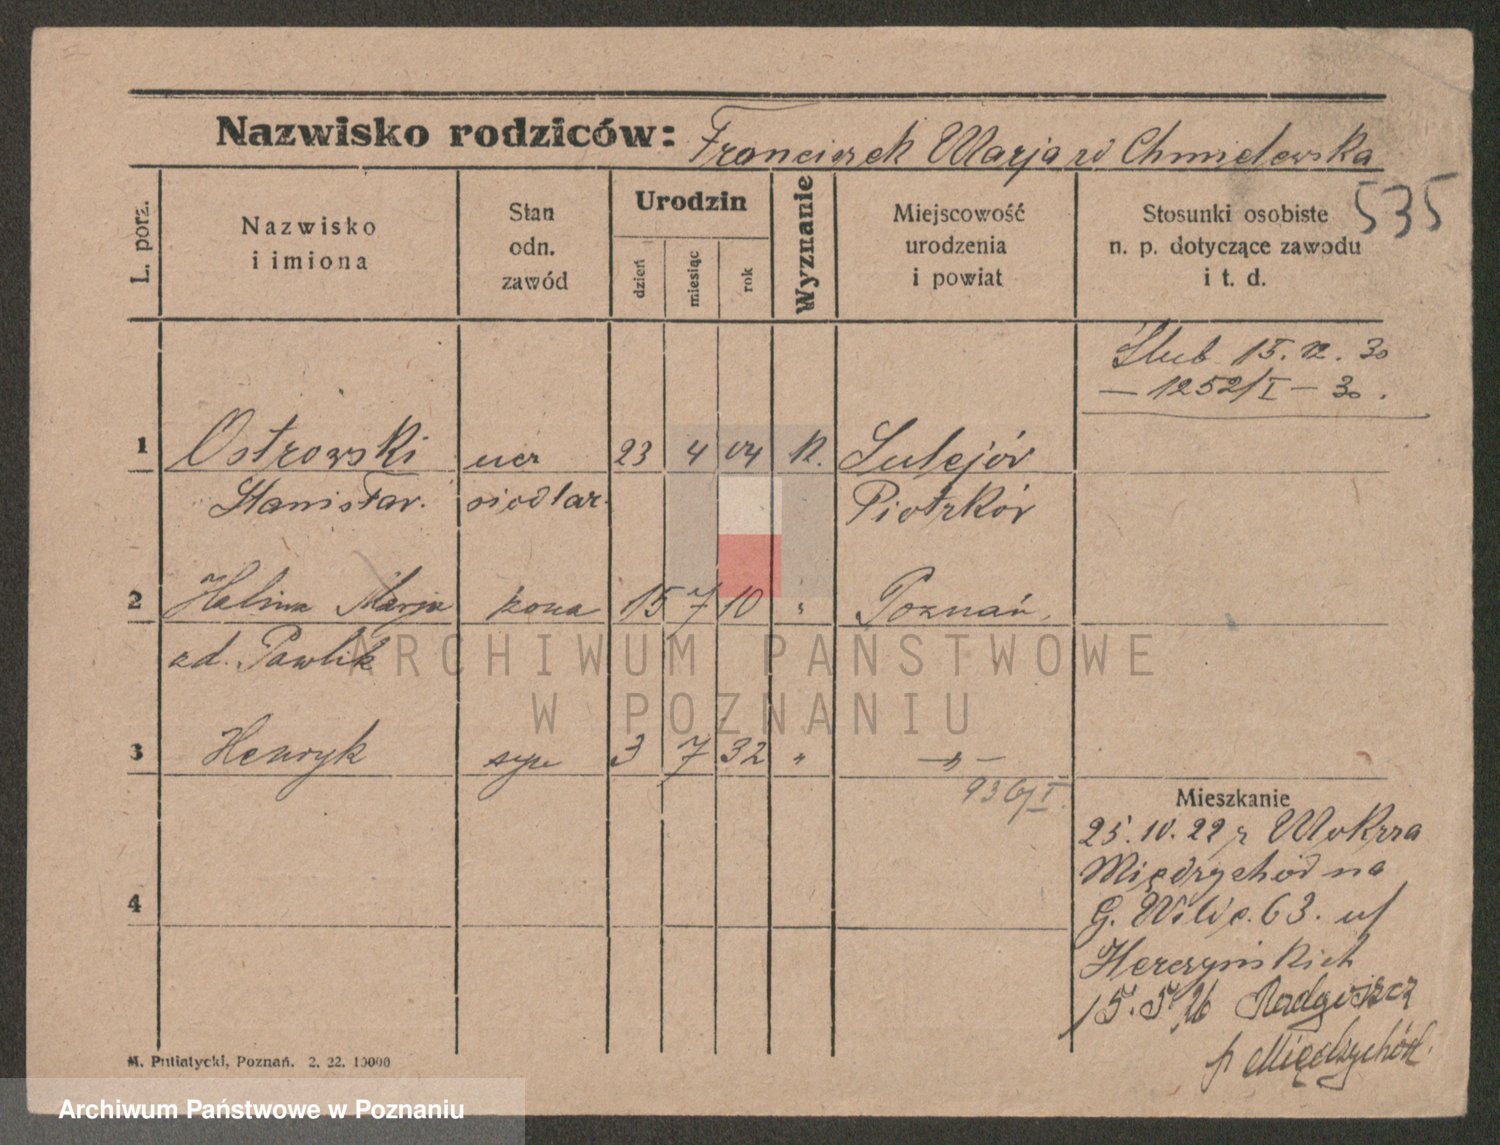 Nazwisko rodziców: Franciszek Marja zd Chmielewska
535
L. porz.
Nazwisko
i imiona
Stan
odn.
zawód
Urodzin
dzień
miesiąc
rok
Wyznanie
Miejscowość
urodzenia
i powiat
Stosunki osobiste
n. p. dotyczące zawodu
i t. d.
Ślub 15. 30
— 1252/I — 30.
1 Ostrowski ucz 23 4 04 K. Sulejów
Stanisław. siodlar. Piotrków
2 Halina Marja żona 15 7 10 " Poznań.
zd. Pawlik
3 Henryk syn 3 7 32 " — " —
936/I.
4
Mieszkanie
25. IV. 22 z
Międzychód na
G. Wilde. 63. u/
Herczyńskich
15. 5. 26 Radgoszcz
p. Międzychód.
M. Putiatycki, Poznań. 2. 22. 10000
ARCHIWUM PAŃSTWOWE
W POZNANIU
Archiwum Państwowe w Poznaniu